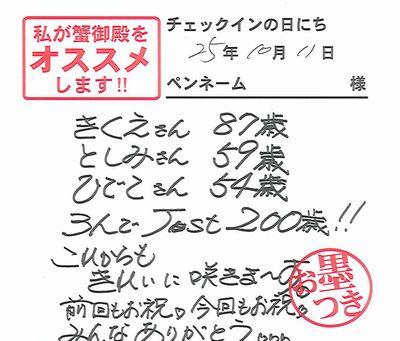 私が蟹御殿を
オススメ
します!!
チェックインの日にち
25年10月11日
ペンネーム 様
きくえさん 87歳
としみさん 59歳
ひでこさん 54歳
3人で Just 200歳!!
これからも
きれいに咲きま〜す
前回もお祝。今回もお祝。
みんなありがとう。。。
お墨つき